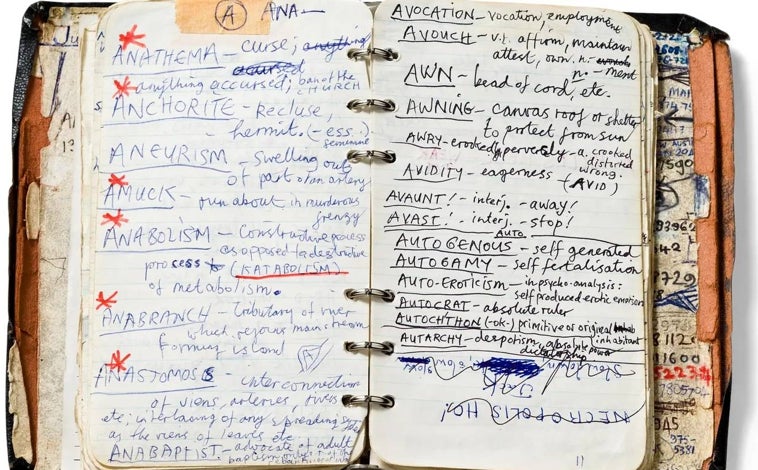 A ANA-
ANATHEMA - curse; anything
accursed
anything accursed; ban of the
CHURCH
ANCHORITE - recluse,
- hermit. (-ess.)
feminine
ANEURISM - swelling out
of part of an artery
AMUCK - run about in murderous
frenzy
ANABOLISM - Constructive process
as opposed to destructive
process (KATABOLISM)
of metabolism.
ANABRANCH - tributary of river
which rejoins main stream
forming island
A
ANASTOMOSIS - interconnection
of viens, arteries, rivers
etc; interlacing of any spreading
as the viens of leaves etc
ANABAPTIST - advocate of adult
baptism
AVOCATION - vocation, employment
AVOUCH - v.t. affirm, maintain
attest, own. n.
n. - ment
AWN - bead of cord, etc.
AWNING - canvas roof or shelter
to protect from sun
AWRY - crookedly, perversely - a. crooked
distorted
wrong.
AVIDITY - eagerness (AVID)
AVAUNT! - interj. - away!
AVAST! - interj. - stop!
AUTO.
AUTOGENOUS - self generated
AUTOGAMY - self fertalisation
AUTO-EROTICISM - in psycho-analysis:
self produced erotic emotions
AUTOCRAT - absolute ruler
AUTOCHTHON (-ok-) primitive or original
inhabitant
AUTARCHY - despotism, absolute power
dictatorship
NECROPOLIS HO!
11